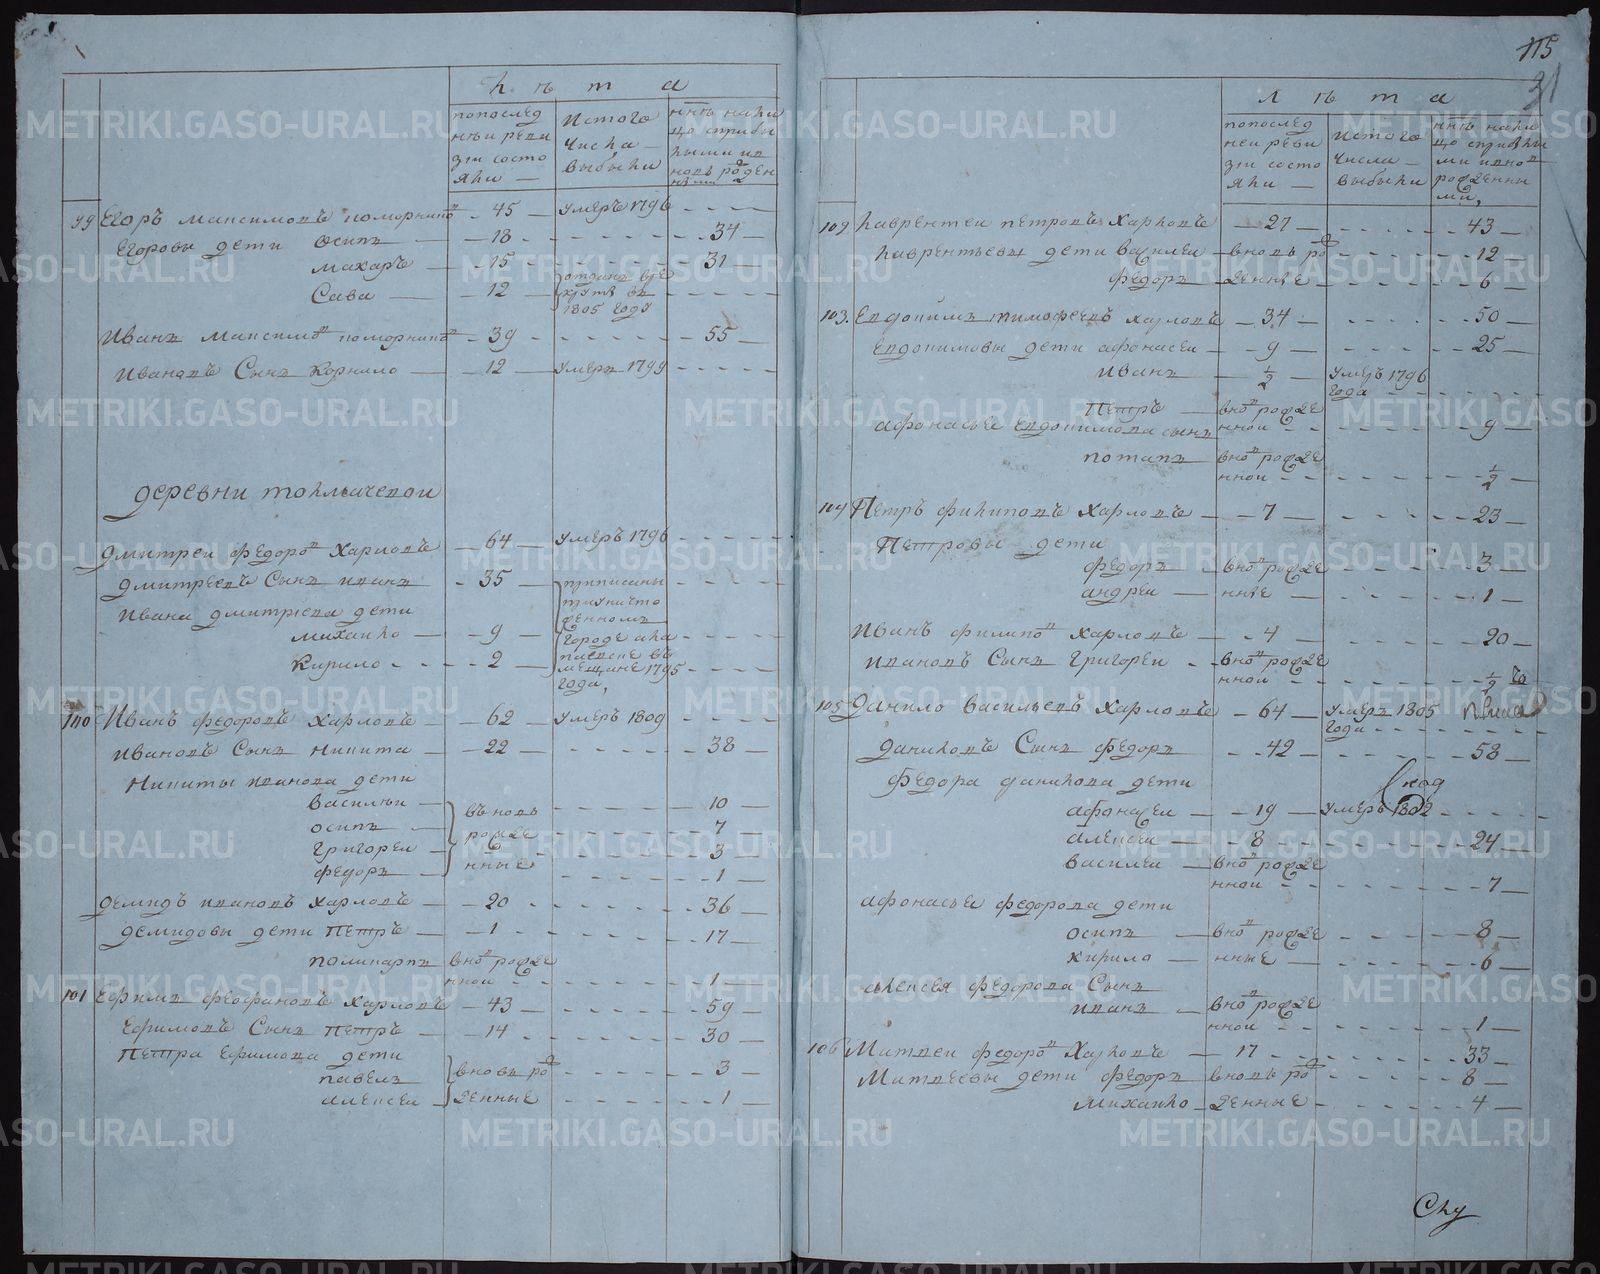 115
31
Лѣта
попослед
нѣи реви
зіи состо
яли —
Истого
числа —
выбыли
ннѣ нали
цо сприбы
лыми и в
новь рожден
ными
99 Егоръ Максимовъ поморниковъ — 45 — умеръ 1796 - - -
Егоровы дети Осипъ — 18 - - - 34 —
Макаръ — 15 - - - 31 —
Сава — 12 отданъ в ре
круты въ
1805 году
Иванъ Максимовъ поморниковъ — 39 - - - 55 —
Ивановъ Сынъ Корнило — 12 — умеръ 1799 - - -
деревни толмачевои
Дмитреи Федоровъ Харловъ — 64 — умеръ 1796 - - -
Дмитреевъ Сынъ иванъ - 35 — приписаны
Ивана дмитриева дети
михаило — 9 — городе ала
Кирило - - - 2 — паевске въ
мещане 1795
года,
100 Иванъ Федоровъ Харловъ — 62 — умеръ 1809 - - -
Ивановъ Сынъ Никита — 22 - - - 38 —
Никиты иванова дети
Василеи — въновь - - - 10 —
осипъ — рожде - - - 7 —
григореи — нные - - - 3 —
федоръ — - - - 1 —
Демидъ ивановъ харловъ — 20 - - - 36 —
Демидовы дети Петръ — 1 - - - 17 —
поликарпъ вновь рожде
нной - - - 1 —
101 Ефимъ феофановъ Харловъ — 43 - - - 59 —
Ефимовъ Сынъ Петръ — 14 - - - 30 —
Петра Ефимова дети
павелъ вновь ро - - - 3 —
алексеи — жденные - - - 1 —
Лѣта
попослед
неи реви
зіи состо
яли —
истого
числа —
выбыли
ннѣ нали
цо сприбылы
ми ивнов
рожденны
ми,
102 Лаврентеи петровъ Харловъ — 27 - - - 43 —
Лаврентьевы дети василеи — вновь ро - - - 12 —
федоръ жденные - - - 6 —
103. Евдокимъ тимофеевъ харловъ — 34 - - - 50 —
Евдокимовы дети афонасеи — 9 - - - 25 —
иванъ — 1/2 — умеръ 1796
года - - -
Петръ — вновь рожде
афонасья евдокимова сынъ нной - - - 9 —
потапъ — вновь рожде
нной - - - 1/2 —
104 Петръ филиповъ харловъ — 7 - - - 23 —
Петровы дети
федоръ — вновь рожде - - - 3 —
андреи — нные - - - 1 —
Иванъ филиповъ харловъ — 4 - - - 20 —
ивановъ Сынъ григореи - вновь рожде
нной - - - 1/2
105 Данило васильевъ Харловъ — 64 — умеръ 1805
года - - -
Даниловъ Сынъ федоръ — 42 - - - 58 —
Федора данилова дети
афонасеи — 19 — умеръ 1802 - - -
алексеи — 8 - - - 24 —
василеи — вновь рожде
нной - - - 7 —
афонасья федорова дети
осипъ — вновь рожде - - - 8 —
кирило — нные - - - 6 —
алексея федорова Сынъ
иванъ — вновь рожде
нной - - - 1 —
106 Матвеи федоровъ Харловъ — 17 - - - 33 —
Матвеевы дети федоръ вновь ро - - - 8 —
михаило — жденные - - - 4 —
METRIKI.GASO-URAL.RU